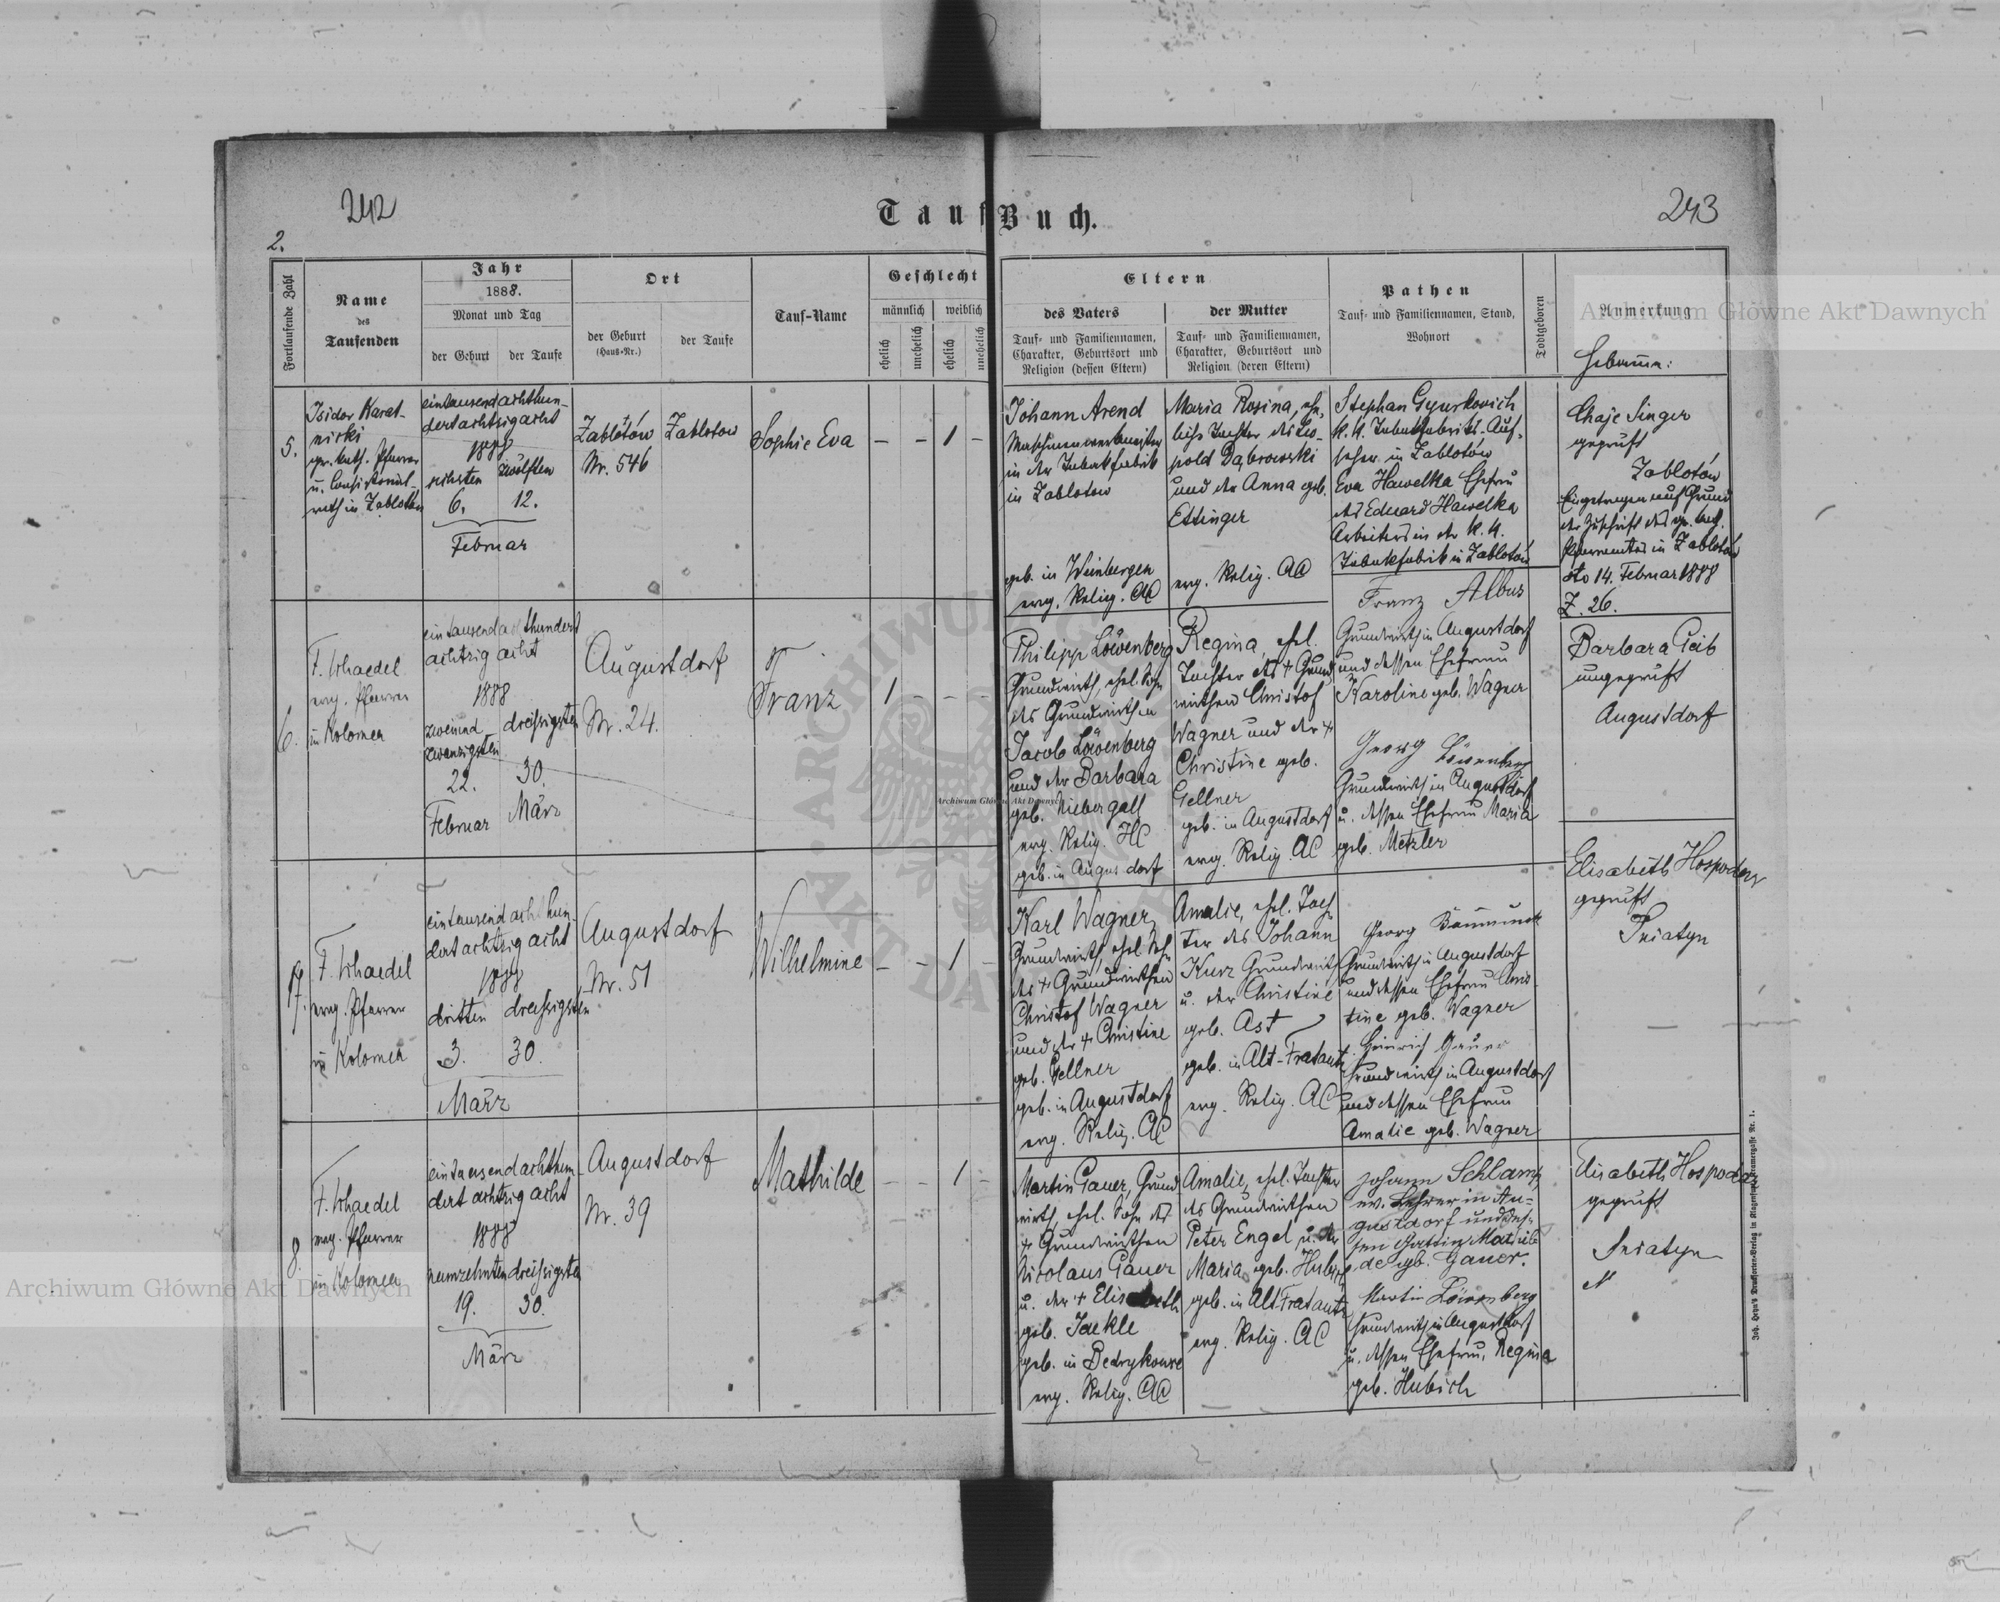 242
243
Tauf Buch.
2.
Fortlaufende Zahl
Name
des
Taufenden
Jahr
1888.
Monat und Tag
der Geburt
der Taufe
Ort
der Geburt
(Haus-Nr.)
der Taufe
Tauf-Name
Geschlecht
männlich
weiblich
ehelich
unehelich
ehelich
unehelich
Eltern
des Vaters
Tauf- und Familiennamen,
Charakter, Geburtsort und
Religion (dessen Eltern)
der Mutter
Tauf- und Familiennamen,
Charakter, Geburtsort und
Religion (deren Eltern)
Pathen
Tauf- und Familiennamen, Stand,
Wohnort
Todtgeboren
Anmerkung
Hebamme:
5.
Isidor Karat-
nicki
gr. kath. Pfarrer
u. Consistorial-
rath in Zablotów
eintausendachthun-
dertachtzigacht
1888
sechsten
zwölften
6.
12.
Februar
Zablótów
Nr. 546
Zablotow
Sophie Eva
– – 1 –
Johann Arend
Maschinenwerkmeister
in der Tabakfabrik
in Zablotow
geb. in Weinbergen
evg. Relig. AC
Maria Rosina, ehe-
liche Tochter des Leo-
pold Dąbrowski
und der Anna geb.
Ettinger
evg. Relig. AC
Stephan Gyurkovich
k. k. Tabakfabriks-Auf-
seher in Zablotów
Eva Hawelka Ehefrau
des Eduard Hawelka
Arbeiters in der k. k.
Tabakfabrik in Zablotów
Chaje Singer
geprüft
Zablotów
Eingetragen auf Grund
der Zuschrift des gr. kath.
Pfarramtes in Zablotów
dto 14. Februar 1888
Z. 26.
6.
F. Schaedel
evg. Pfarrer
in Kolomea
eintausendachthundert
achtzig acht
1888
zweiund-
zwanzigsten
dreissigsten
22.
30.
Februar
März
Augustdorf
Nr. 24.
Franz
1 – – –
Philipp Löwenberg
Grundwirth, ehel. Sohn
des Grundwirthen
Jacob Löwenberg
und der Barbara
geb. Niebergall
evg. Relig. HC
geb. in Augustdorf
Regina, ehel.
Tochter des + Grund-
wirthen Christof
Wagner und der +
Christine geb.
Gellner
geb. in Augustdorf
evg. Relig. AC
Franz Albus
Grundwirth in Augustdorf
und dessen Ehefrau
Karoline geb. Wagner
Georg Löwenberg
Grundwirth in Augustdorf
u. dessen Ehefrau Maria
geb. Metzler
Barbara Geib
ungeprüft
Augustdorf
7.
F. Schaedel
evg. Pfarrer
in Kolomea
eintausend achthun-
dert achtzig acht
1888
dritten
dreissigsten
3.
30.
März
Augustdorf
Nr. 51
Wilhelmine
– – 1 –
Karl Wagner,
Grundwirth, ehel. Sohn
des + Grundwirthen
Christof Wagner
und der + Christine
geb. Gellner
geb. in Augustdorf
evg. Relig. AC
Amalie, ehel. Toch-
ter des Johann
Kurz Grundwirth
u. der Christine
geb. Ast
geb. in Alt-Fratautz
evg. Relig. AC
Georg
Grundwirth in Augustdorf
und dessen Ehefrau Chris-
tine geb. Wagner
Heinrich Gauer
Grundwirth in Augustdorf
und dessen Ehefrau
Amalie geb. Wagner
Elisabeth Hospodar
geprüft
Sniatyn
8.
F. Schaedel
evg. Pfarrer
in Kolomea
eintausendachthun-
dert achtzig acht
1888
neunzehnten
dreissigsten
19.
30.
März
Augustdorf
Nr. 39
Mathilde
– – 1 –
Martin Gauer, Grund-
wirth, ehel. Sohn des
+ Grundwirthen
Nicolaus Gauer
u. der + Elisabeth
geb. Jaekle
geb. in Bedrykowce
evg. Relig. AC
Amalie, ehel. Tochter
des Grundwirthen
Peter Engel u. der
Maria geb. Hubich
geb. in Alt Fratautz
evg. Relig. AC
Johann Schlamp
ev. Lehrer in Au-
gustdorf und des-
sen Gattin Mathil-
de gb. Gauer.
Martin Löwenberg
Grundwirth in Augustdorf
u. dessen Ehefrau Regina
geb. Hubich
Elisabeth Hospodar
geprüft
Sniatyn
Joh. Heyn's Drucksorten-Verlag in Klagenfurt, Kramergasse Nr. 1.
Archiwum Główne Akt Dawnych
Archiwum Główne Akt Dawnych
Archiwum Główne Akt Dawnych